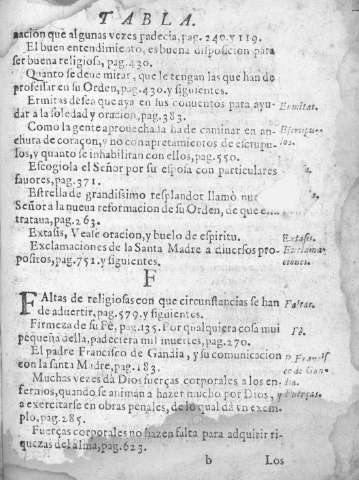 TABLA.
nacion que algunas vezes padecia, pag. 240. y 119.
El buen entendimiento, es buena disposicion para
ser buena religiosa, pag. 430.
Quanto se deue mirar, que le tengan las que han de
professar en su Orden, pag. 430. y siguientes.
Ermitas desea que aya en sus conuentos para ayu-
dar a la soledad y oracion, pag. 383.
Ermitas.
Como la gente aprouechada ha de caminar en an-
chura de coraçon, y no con apretamientos de escrupu-
los, y quanto se inhabilitan con ellos, pag. 550.
Escrupu-
los.
Escogiola el Señor por su esposa con particulares
fauores, pag. 371.
Estrella de grandissimo resplandor llamò nue
Señor a la nueua reformacion de su Orden, de que
trataua, pag. 263.
Extasis, Vease oracion, y buelo de espiritu.
Extasis.
Exclamaciones de la Santa Madre a diuersos pro-
positos, pag. 751. y siguientes.
Exclama-
ciones.
F
FAltas de religiosas con que circunstancias se han
de aduertir, pag. 579. y siguientes.
Faltas.
Firmeza de su Fè, pag. 135. Por qualquiera cosa mui
pequeña della, padeciera mil muertes, pag. 270.
Fè.
El padre Francisco de Gandia, y su comunicacion
con la santa Madre, pag. 183.
P. Francis
co de Gan-
dia.
Muchas vezes dà Dios fuerças corporales a los en-
fermos, quando se animan a hazer mucho por Dios, y
a exercitarse en obras penales, de lo qual dà vn exem-
plo, pag. 285.
Fuerças.
Fuerças corporales no hazen falta para adquirir ri-
quezas del alma, pag. 623.
b Los